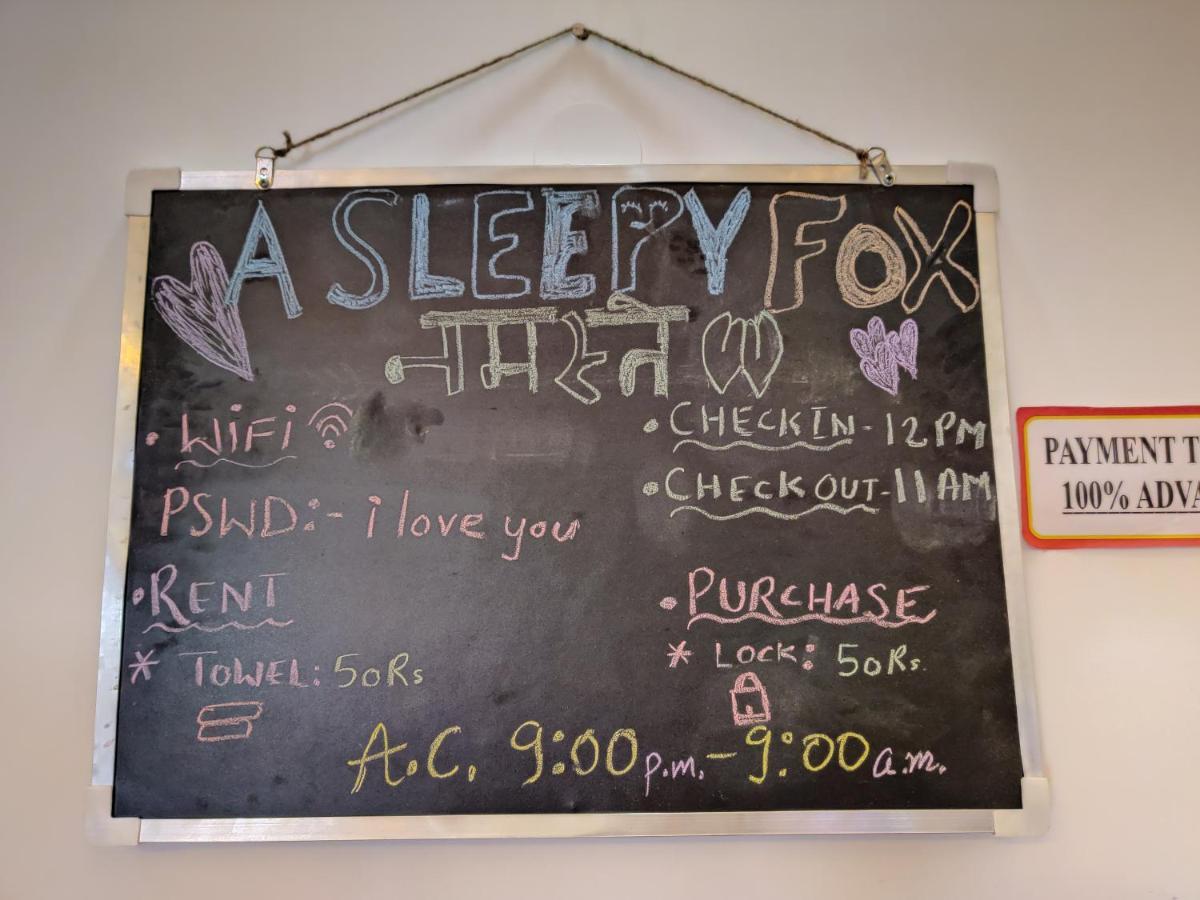 A SLEEPY FOX
नमस्ते
• WiFi
PSWD:- i love you
• RENT
* TOWEL: 50Rs
• CHECKIN - 12 PM
• CHECK OUT - 11 AM
• PURCHASE
* LOCK: 50Rs.
A.C. 9:00 p.m. - 9:00 a.m.
PAYMENT
100%